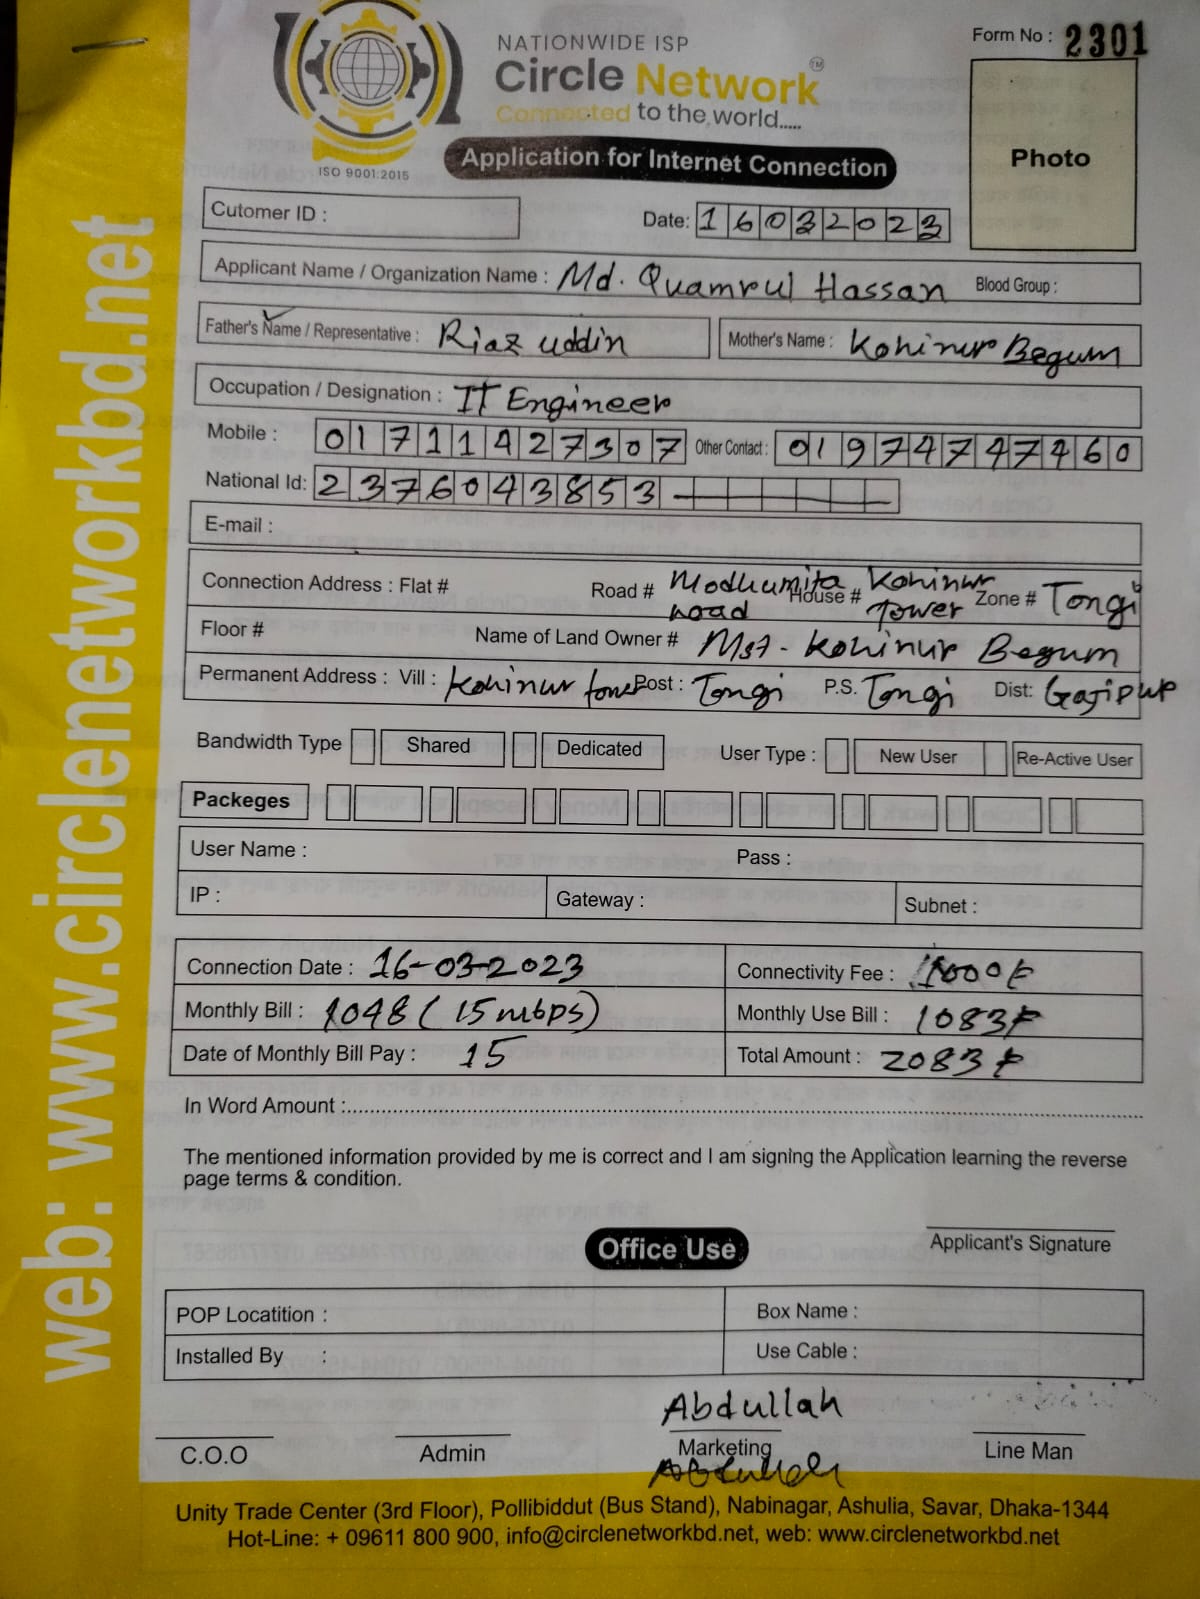 NATIONWIDE ISP
Circle Network TM
Connected to the world.....
ISO 9001:2015
Form No : 2301
Photo
Application for Internet Connection
Cutomer ID :
Date: 16032023
Applicant Name / Organization Name : Md. Quamrul Hassan Blood Group :
Father's Name / Representative : Riaz uddin Mother's Name : Kohinur Begum
Occupation / Designation : IT Engineer
Mobile : 01711427307 Other Contact : 01974747460
National Id: 2376043853
E-mail :
Connection Address : Flat # Road # Modhumita road House # Kohinur Tower Zone # Tongi
Floor # Name of Land Owner # Mst - Kohinur Begum
Permanent Address : Vill : Kohinur tower Post : Tongi P.S. Tongi Dist: Gajipur
Bandwidth Type Shared Dedicated User Type : New User Re-Active User
Packeges
User Name : Pass :
IP : Gateway : Subnet :
Connection Date : 16-03-2023 Connectivity Fee : 1000৳
Monthly Bill : 1048 (15 mbps) Monthly Use Bill : 1083৳
Date of Monthly Bill Pay : 15 Total Amount : 2083৳
In Word Amount :
The mentioned information provided by me is correct and I am signing the Application learning the reverse
page terms & condition.
Applicant's Signature
Office Use
POP Locatition : Box Name :
Installed By : Use Cable :
Abdullah
C.O.O Admin Marketing Line Man
Abdullah
Unity Trade Center (3rd Floor), Pollibiddut (Bus Stand), Nabinagar, Ashulia, Savar, Dhaka-1344
Hot-Line: + 09611 800 900, info@circlenetworkbd.net, web: www.circlenetworkbd.net
web: www.circlenetworkbd.net